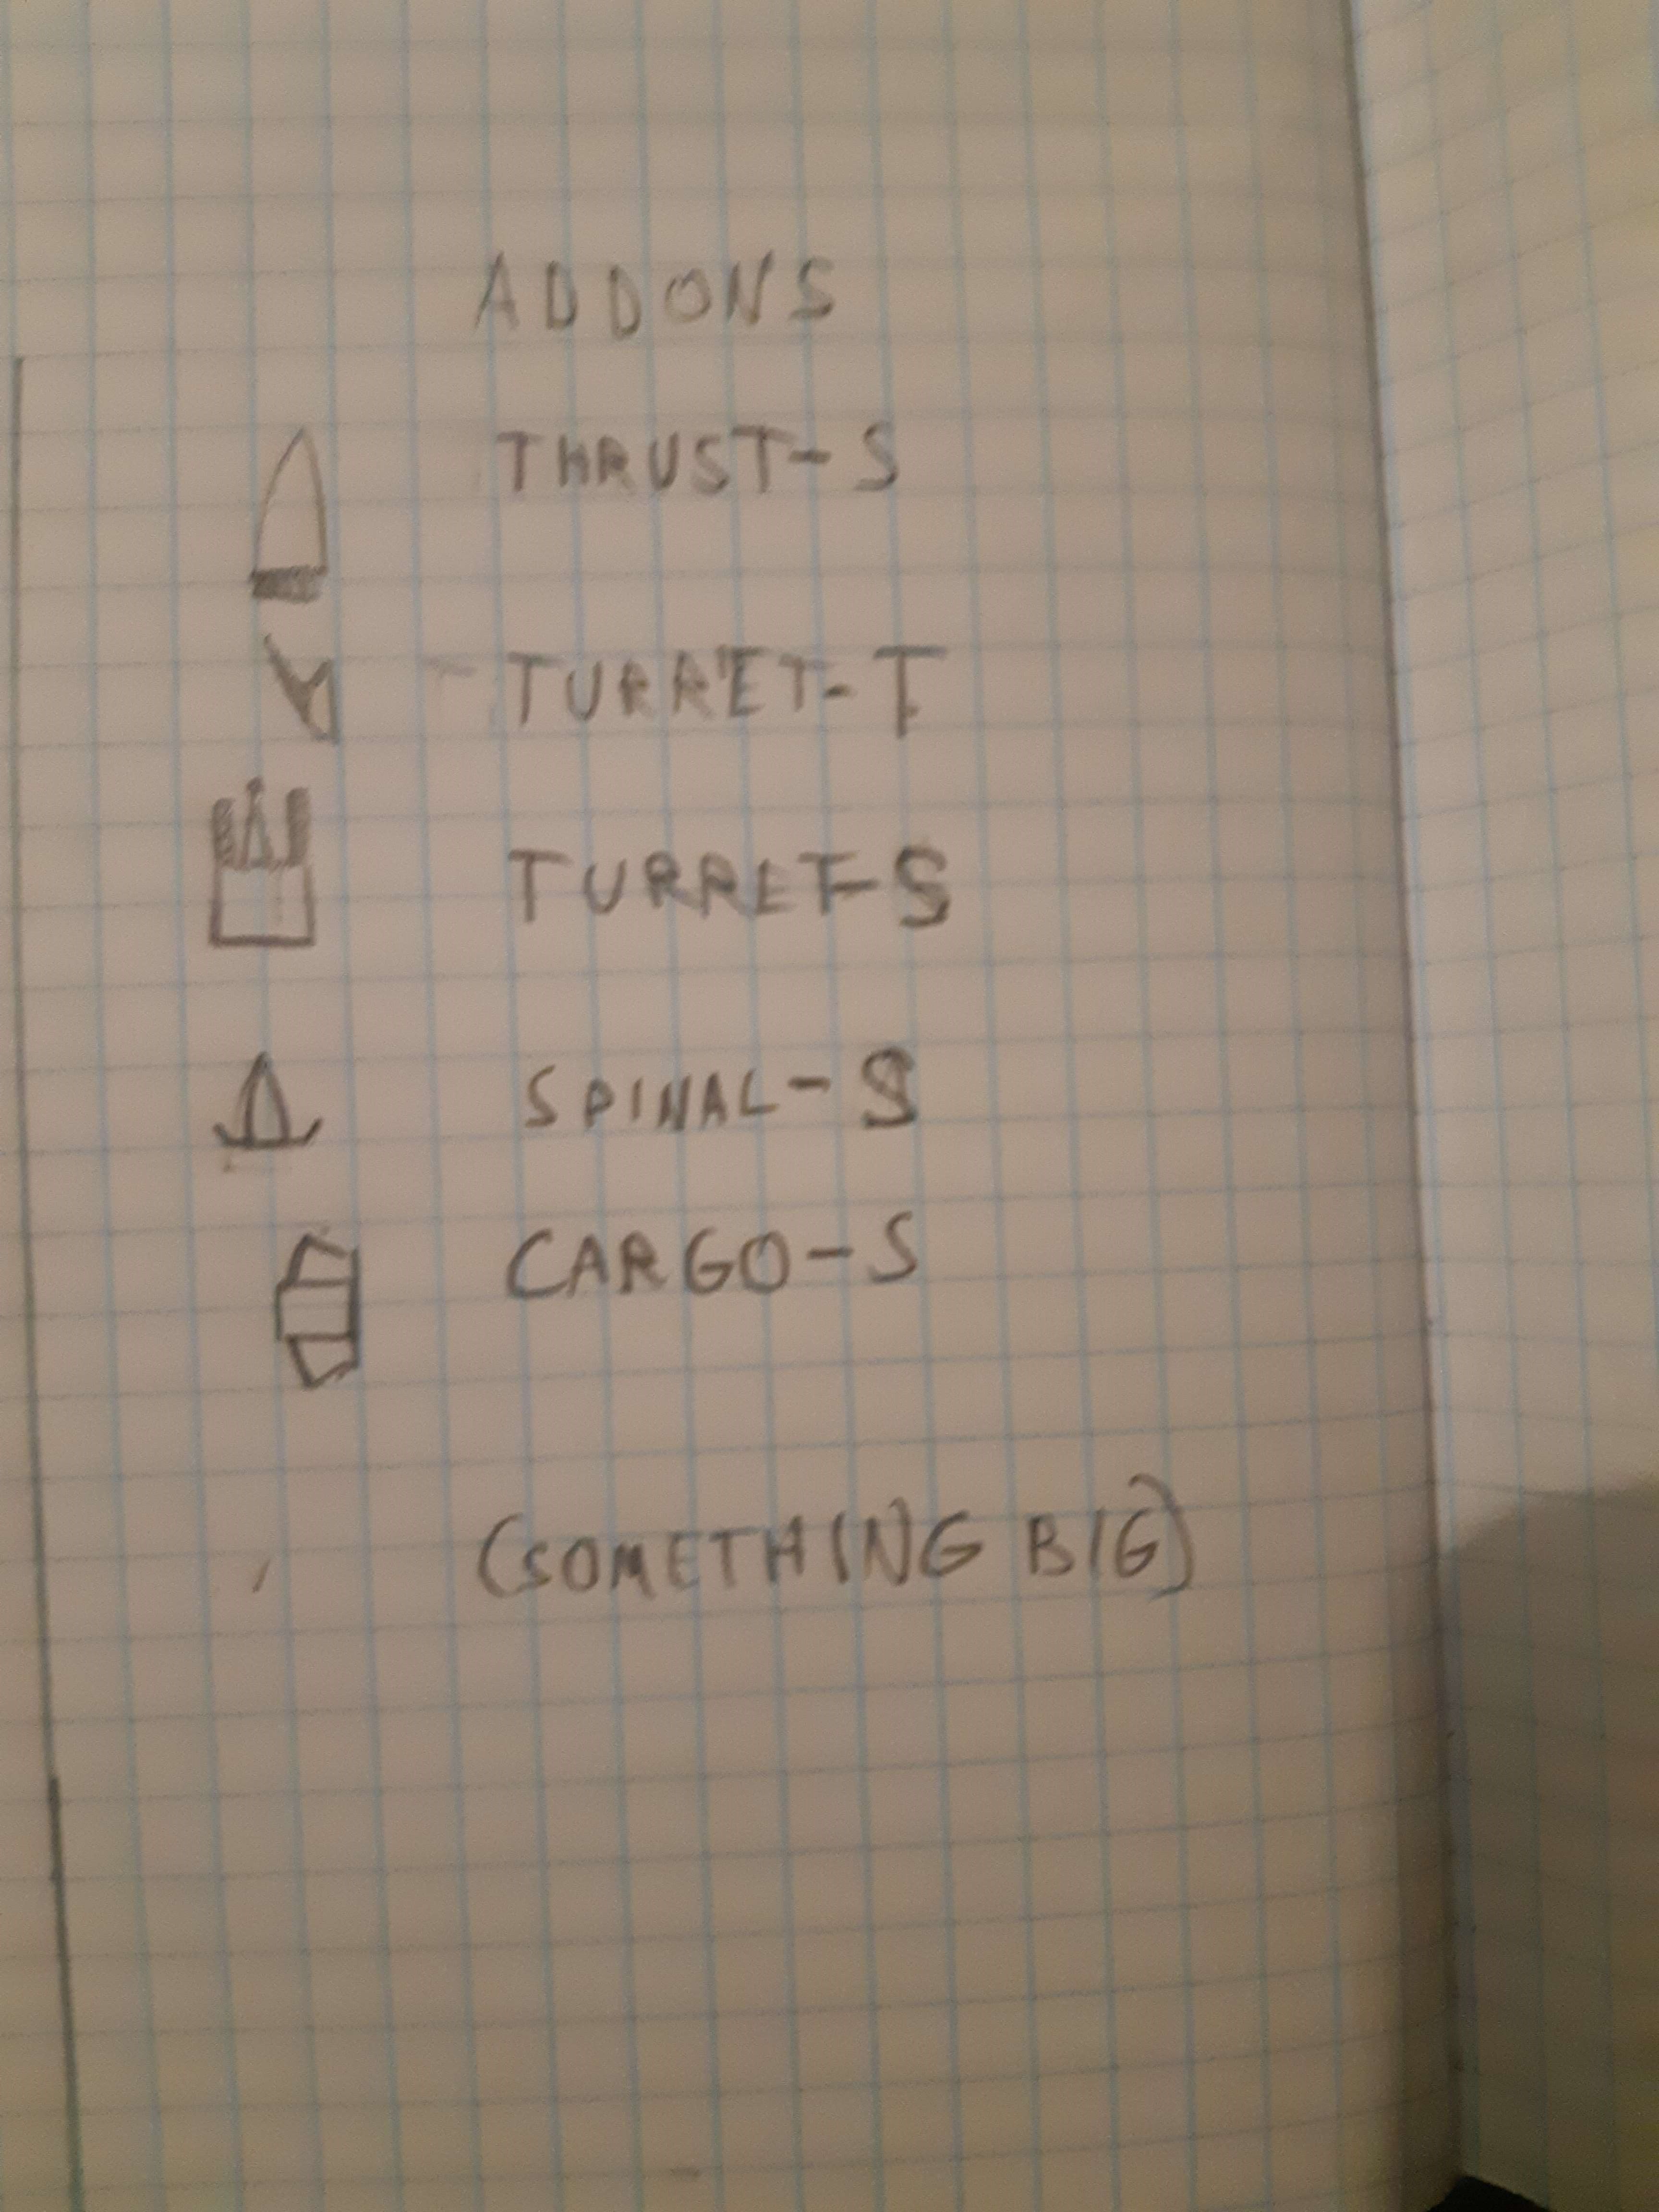 ADDONS
THRUST-S
TURRET-T
TURRET-S
SPINAL-S
CARGO-S
(SOMETHING BIG)